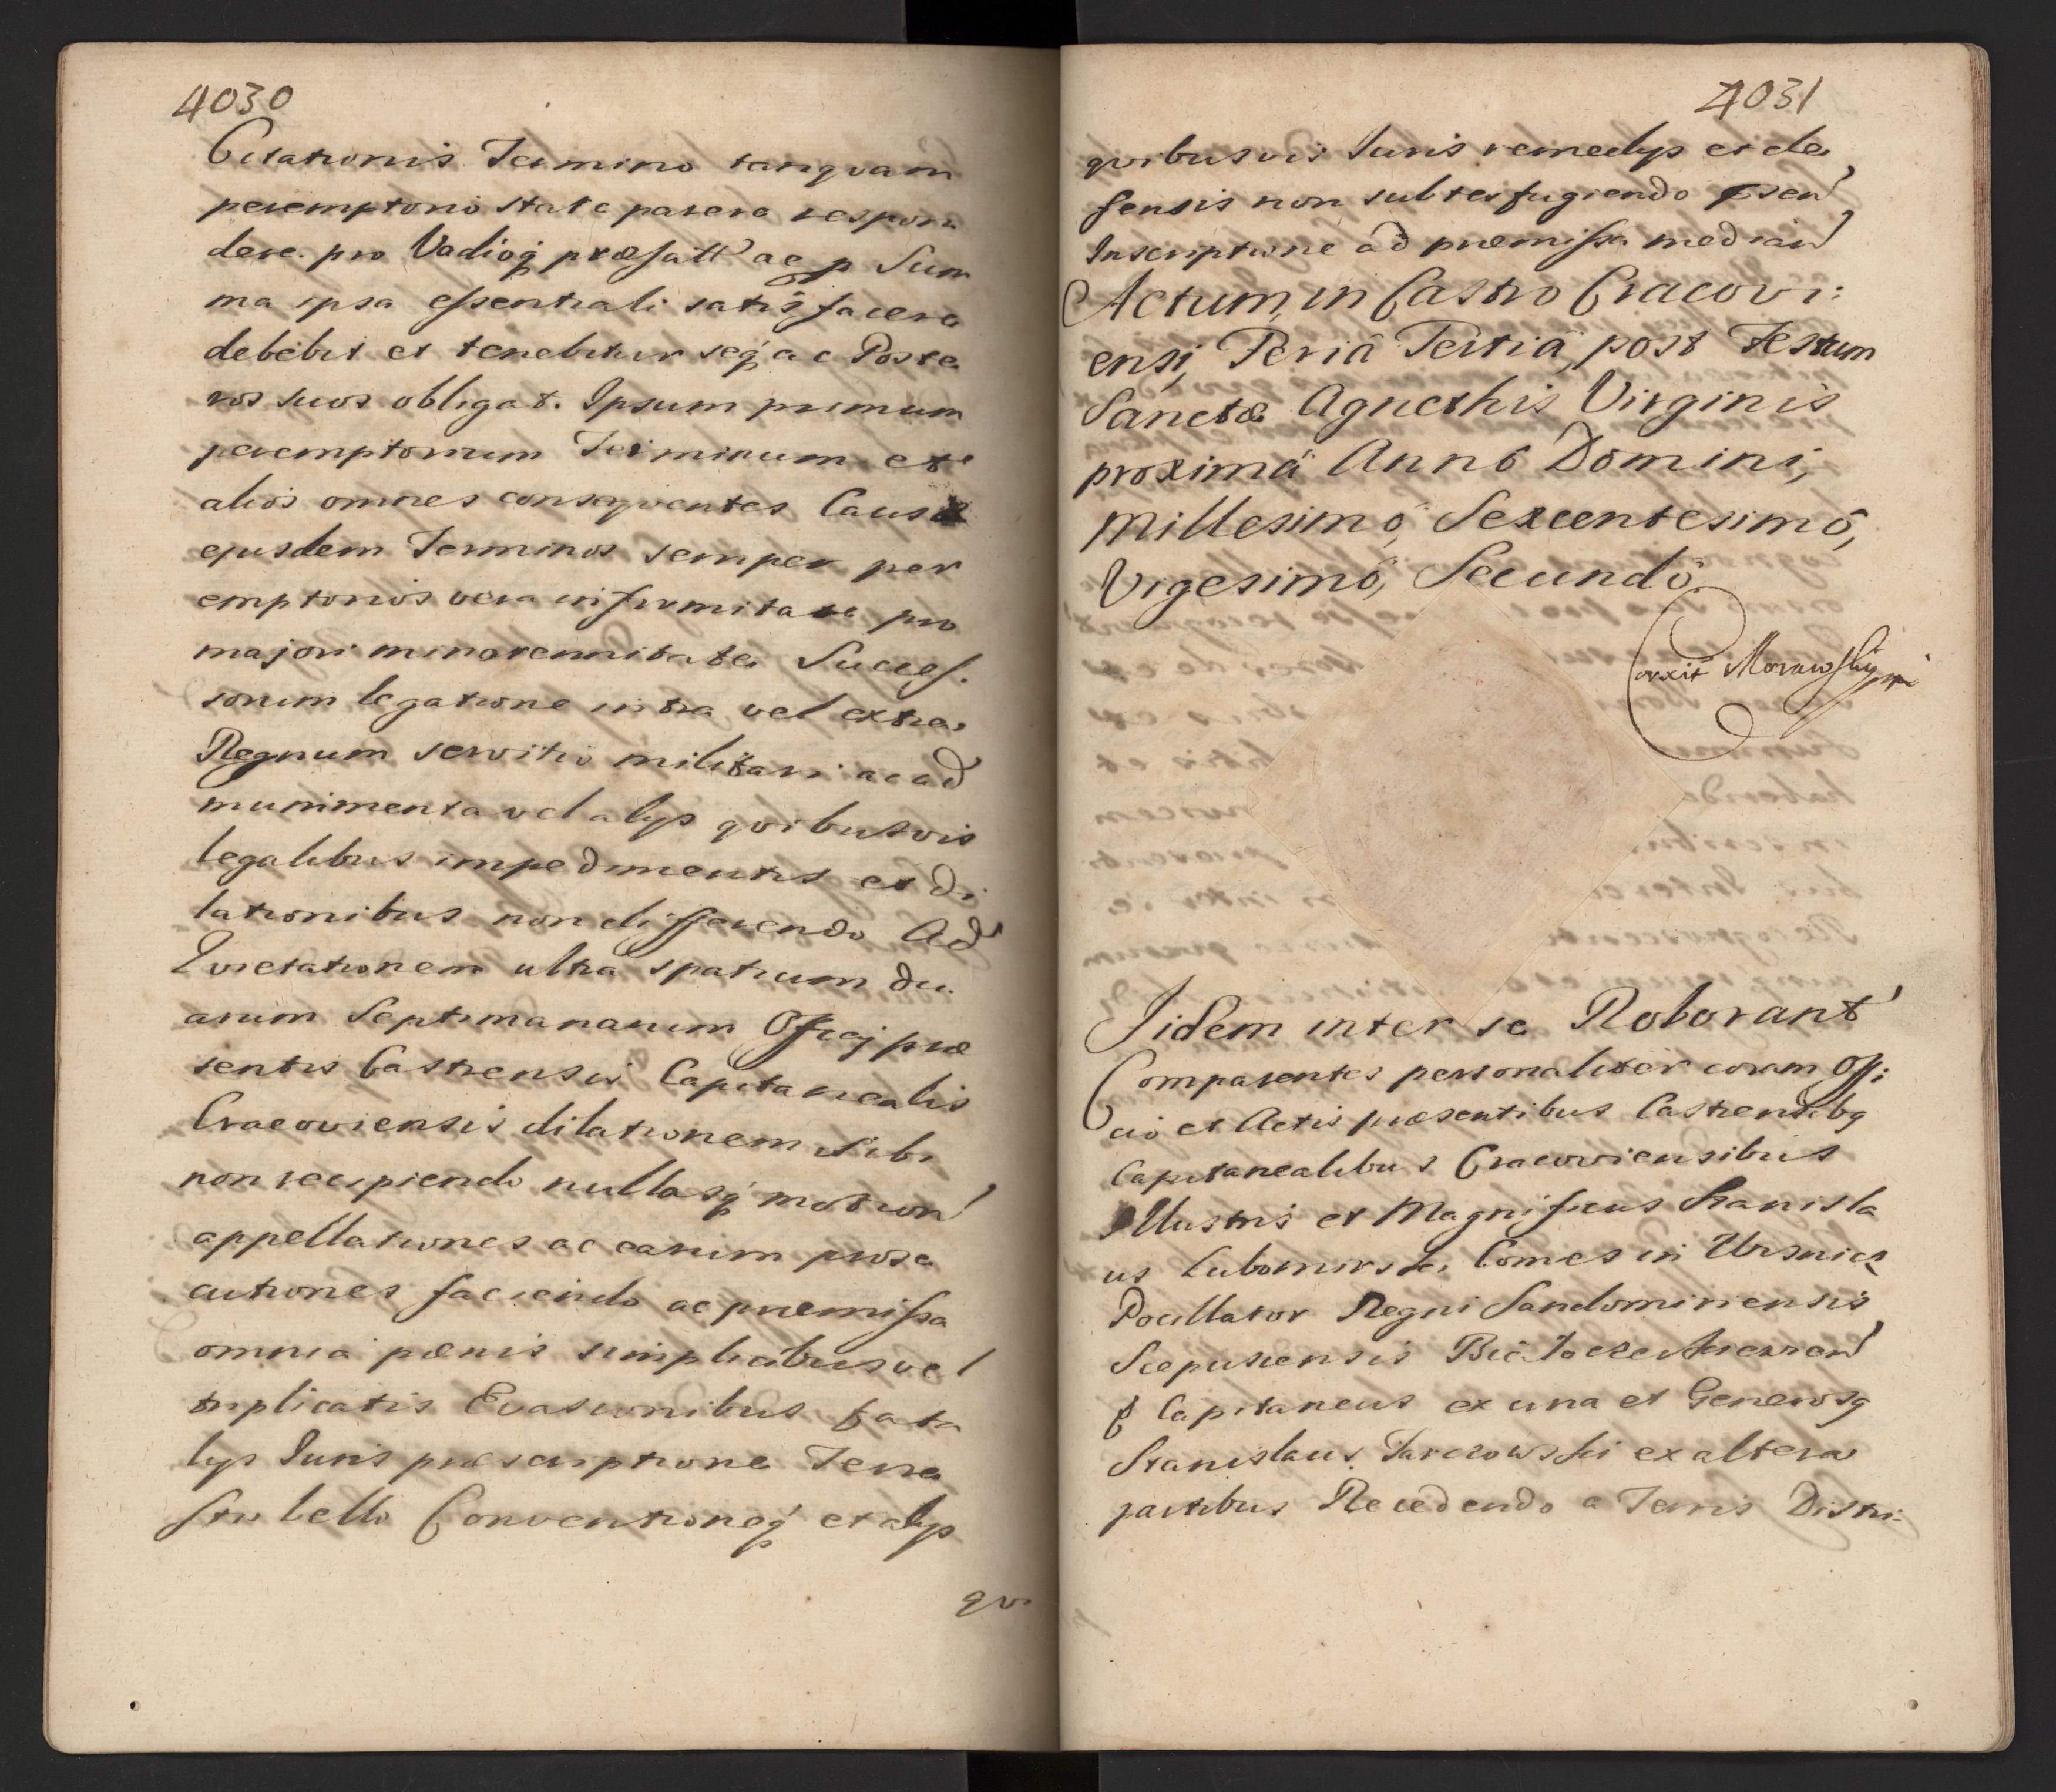 4030
Citationis Termino tanquam
peremptorio stare parere respon
dere pro Vadioq praefatt ac p Sum
ma ipsa essentiali satisfacere
debebit et tenebitur seq ac Poste
ros suos obligat. Ipsum primum
peremptorium Terminum et
alios omnes consequentes Causae
ejusdem Terminos semper per
emptorios vera infirmitate pro
majori minorennitate Succes.
sorum legatione intra vel extra
Regnum servitio militari ac ad
munimenta vel alys quibusvis
legalibus impedimentis et di
lationibus non differendo Ad
Evictationem ultra spatium du
arum Septimanarum Officij prae
sentis Castrensis Capitanealis
Cracoviensis dilationem sibi
non recipiendo nullasq motion
appellationes ac earum prose
cutiones faciendo ac praemissa
omnia paenis simplicibus vel
triplicatis Evasionibus fata
lys Iuris praescriptione Terre
stri bello Conventioneq et alys
qvi
4031
quibusvis Iuris remedys et de
fensis non subterfugiendo psen
Inscriptione ad praemissa median
Actum in Castro Cracovi:
ensi, Feriâ Tertiâ post Festum
Sanctae Agnethis Virginis
proximâ Anno Domini,
Millesimô, Sexcentesimô,
Vigesimô, Secundô.
Corxit Morawski mp
Iidem inter se Roborant
Comparentes personaliter coram Offi
cio et Actis praesentibus Castrensibq
Capitanealibus Cracoviensibus
Illustris et Magnificus Stanisla
us Lubomirski Comes in Wisnicz
Pocillator Regni Sandomiriensis
Scepusiensis
p Capitaneus ex una et Generosq
Stanislaus Tarczowski ex altera
partibus Recedendo a Terris Distri-